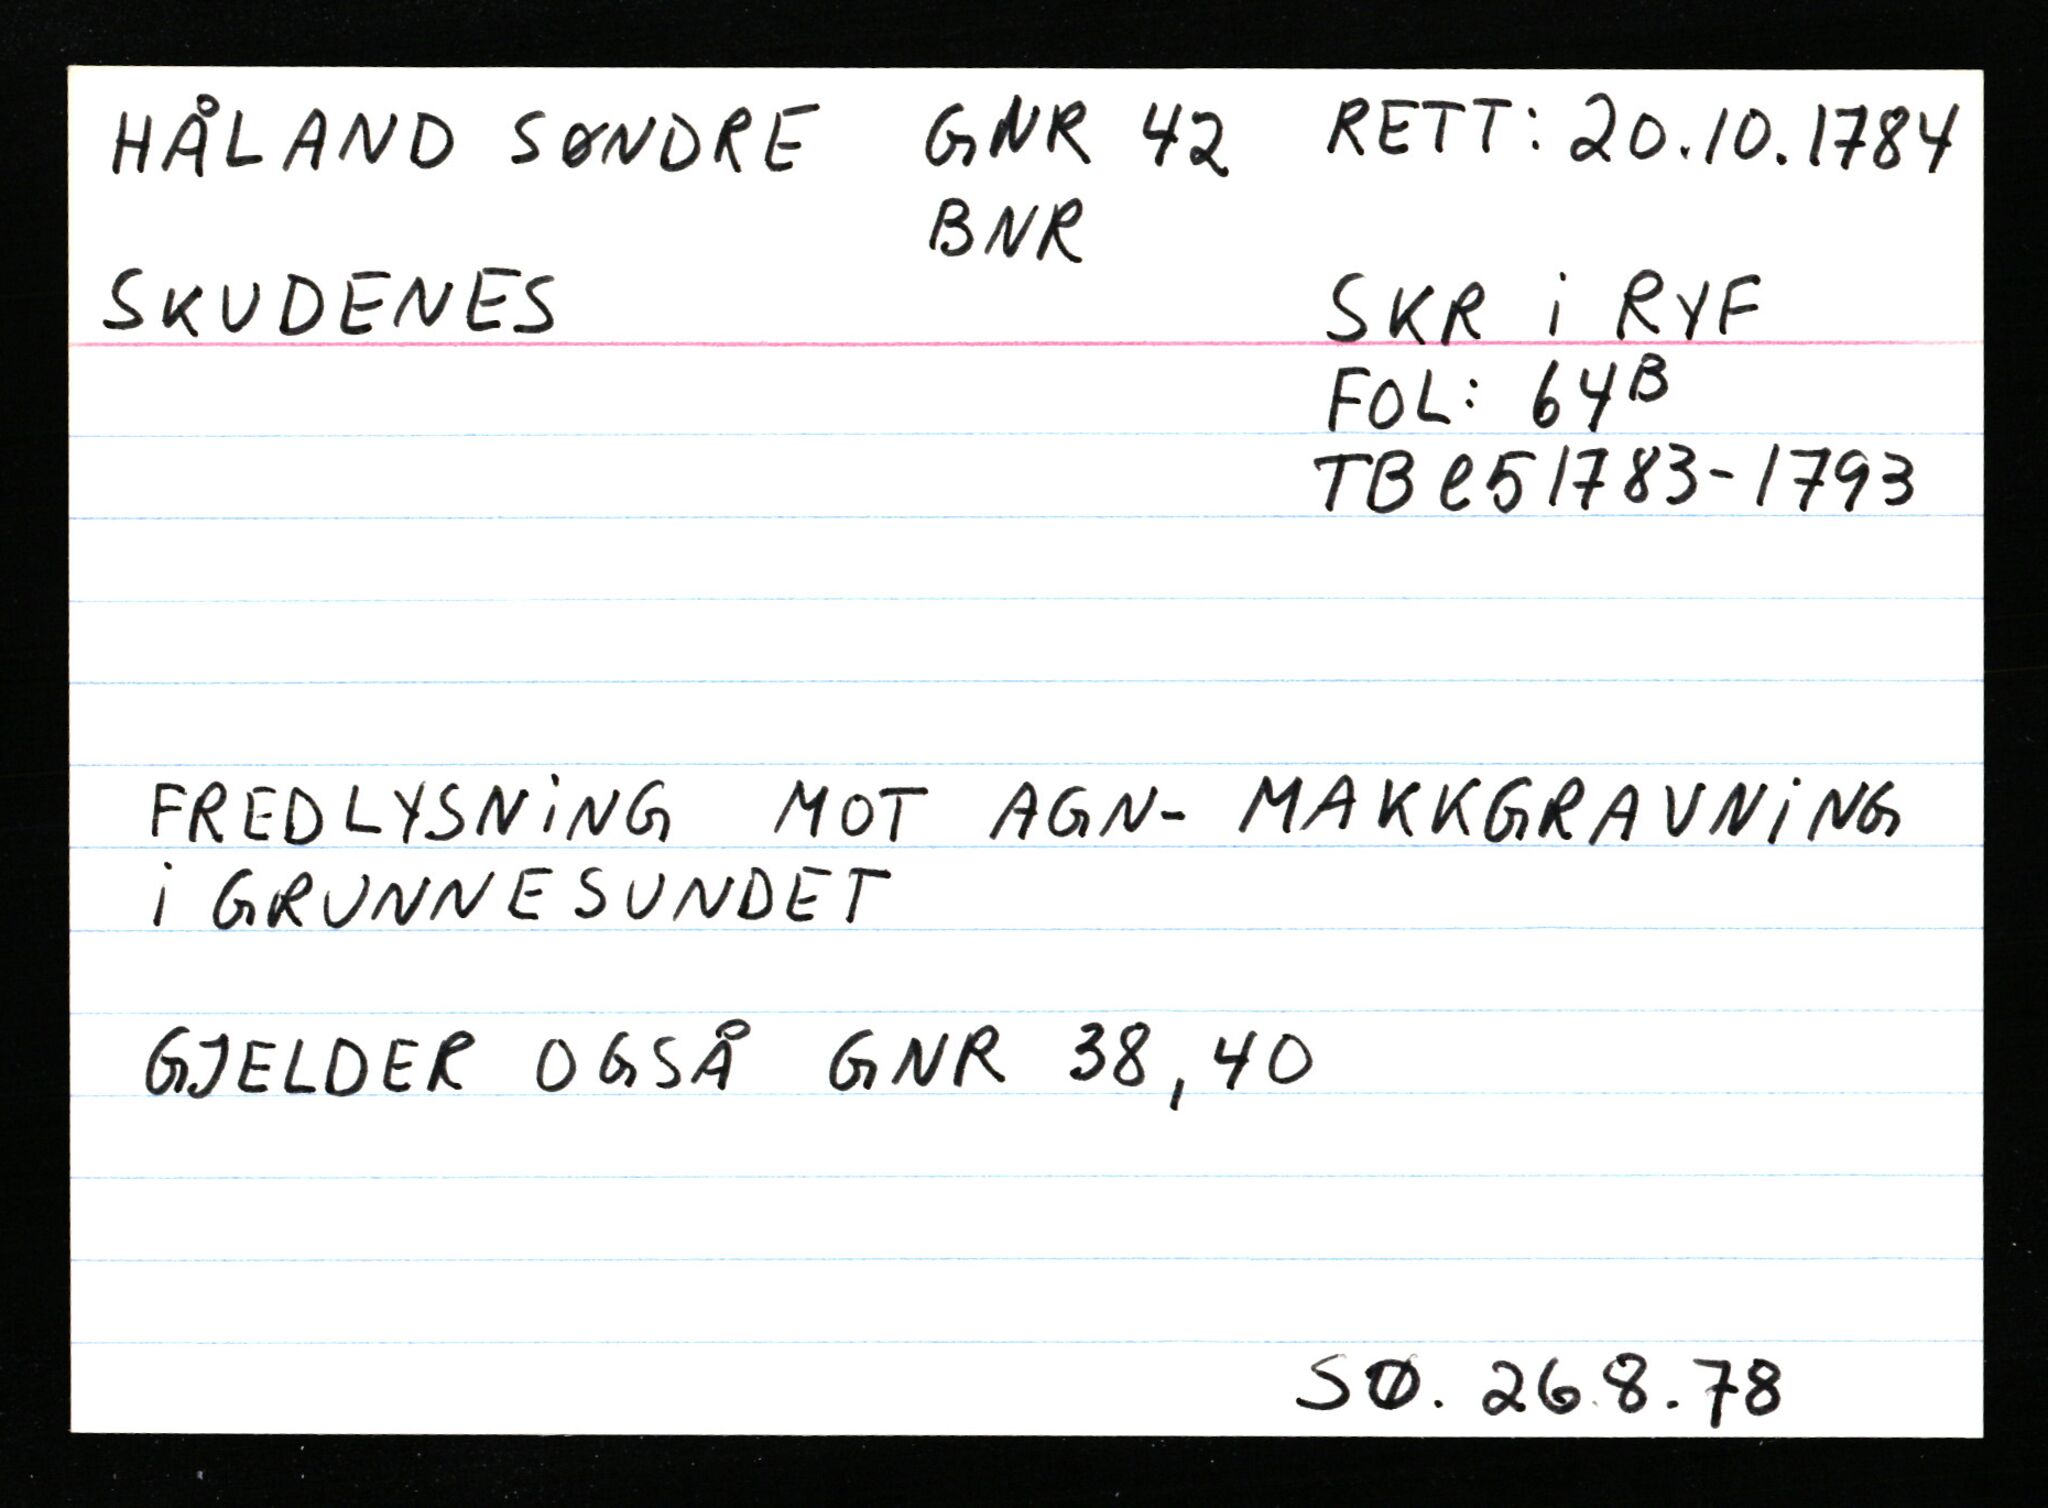 HÅLAND SØNDRE GNR 42 RETT: 20.10.1784
BNR
SKUDENES SKR i RYF
FOL: 64B
TB e5 1783-1793
FREDLYSNiNG MOT AGN- MAKKGRAVNiNG
i GRUNNESUNDET
GJELDER OGSÅ GNR 38,40
SØ. 26.8.78